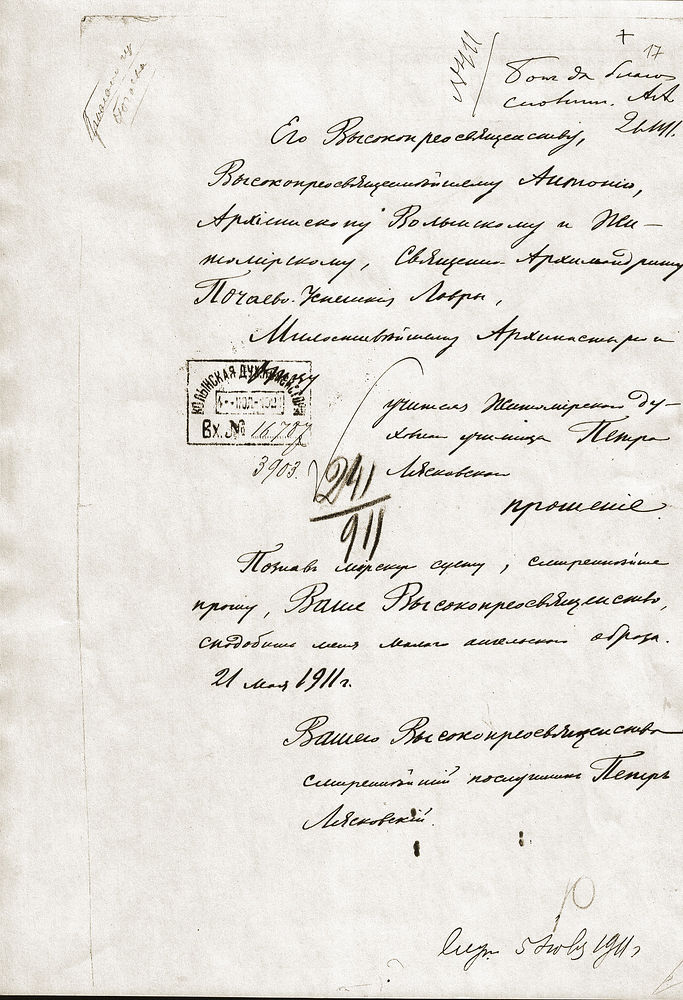 17
№ 411
Богъ да благо
словитъ. АА
Его Высокопреосвященству, 21.VII.
Высокопреосвященнѣйшему Антонію,
Архіепископу Волынскому и Жи-
томірскому, Священно-Архимандриту
Почаево-Успенскія Лавры,
Милостивѣйшему Архипастырю и
ВОЛЫНСКАЯ ДУХ.
Вх. № 16.707
3903.
241
911
учителя Житомірскаго Ду-
ховнаго училища Петра
Лясковскаго
прошеніе.
Познавъ мірскую суету, смиреннѣйше
прошу, Ваше Высокопреосвященство,
сподобить меня малаго ангельскаго образа.
21 мая 1911 г.
Вашего Высокопреосвященства
смиреннѣйшій послушникъ Петръ
Лясковскій.
5 1911 г.